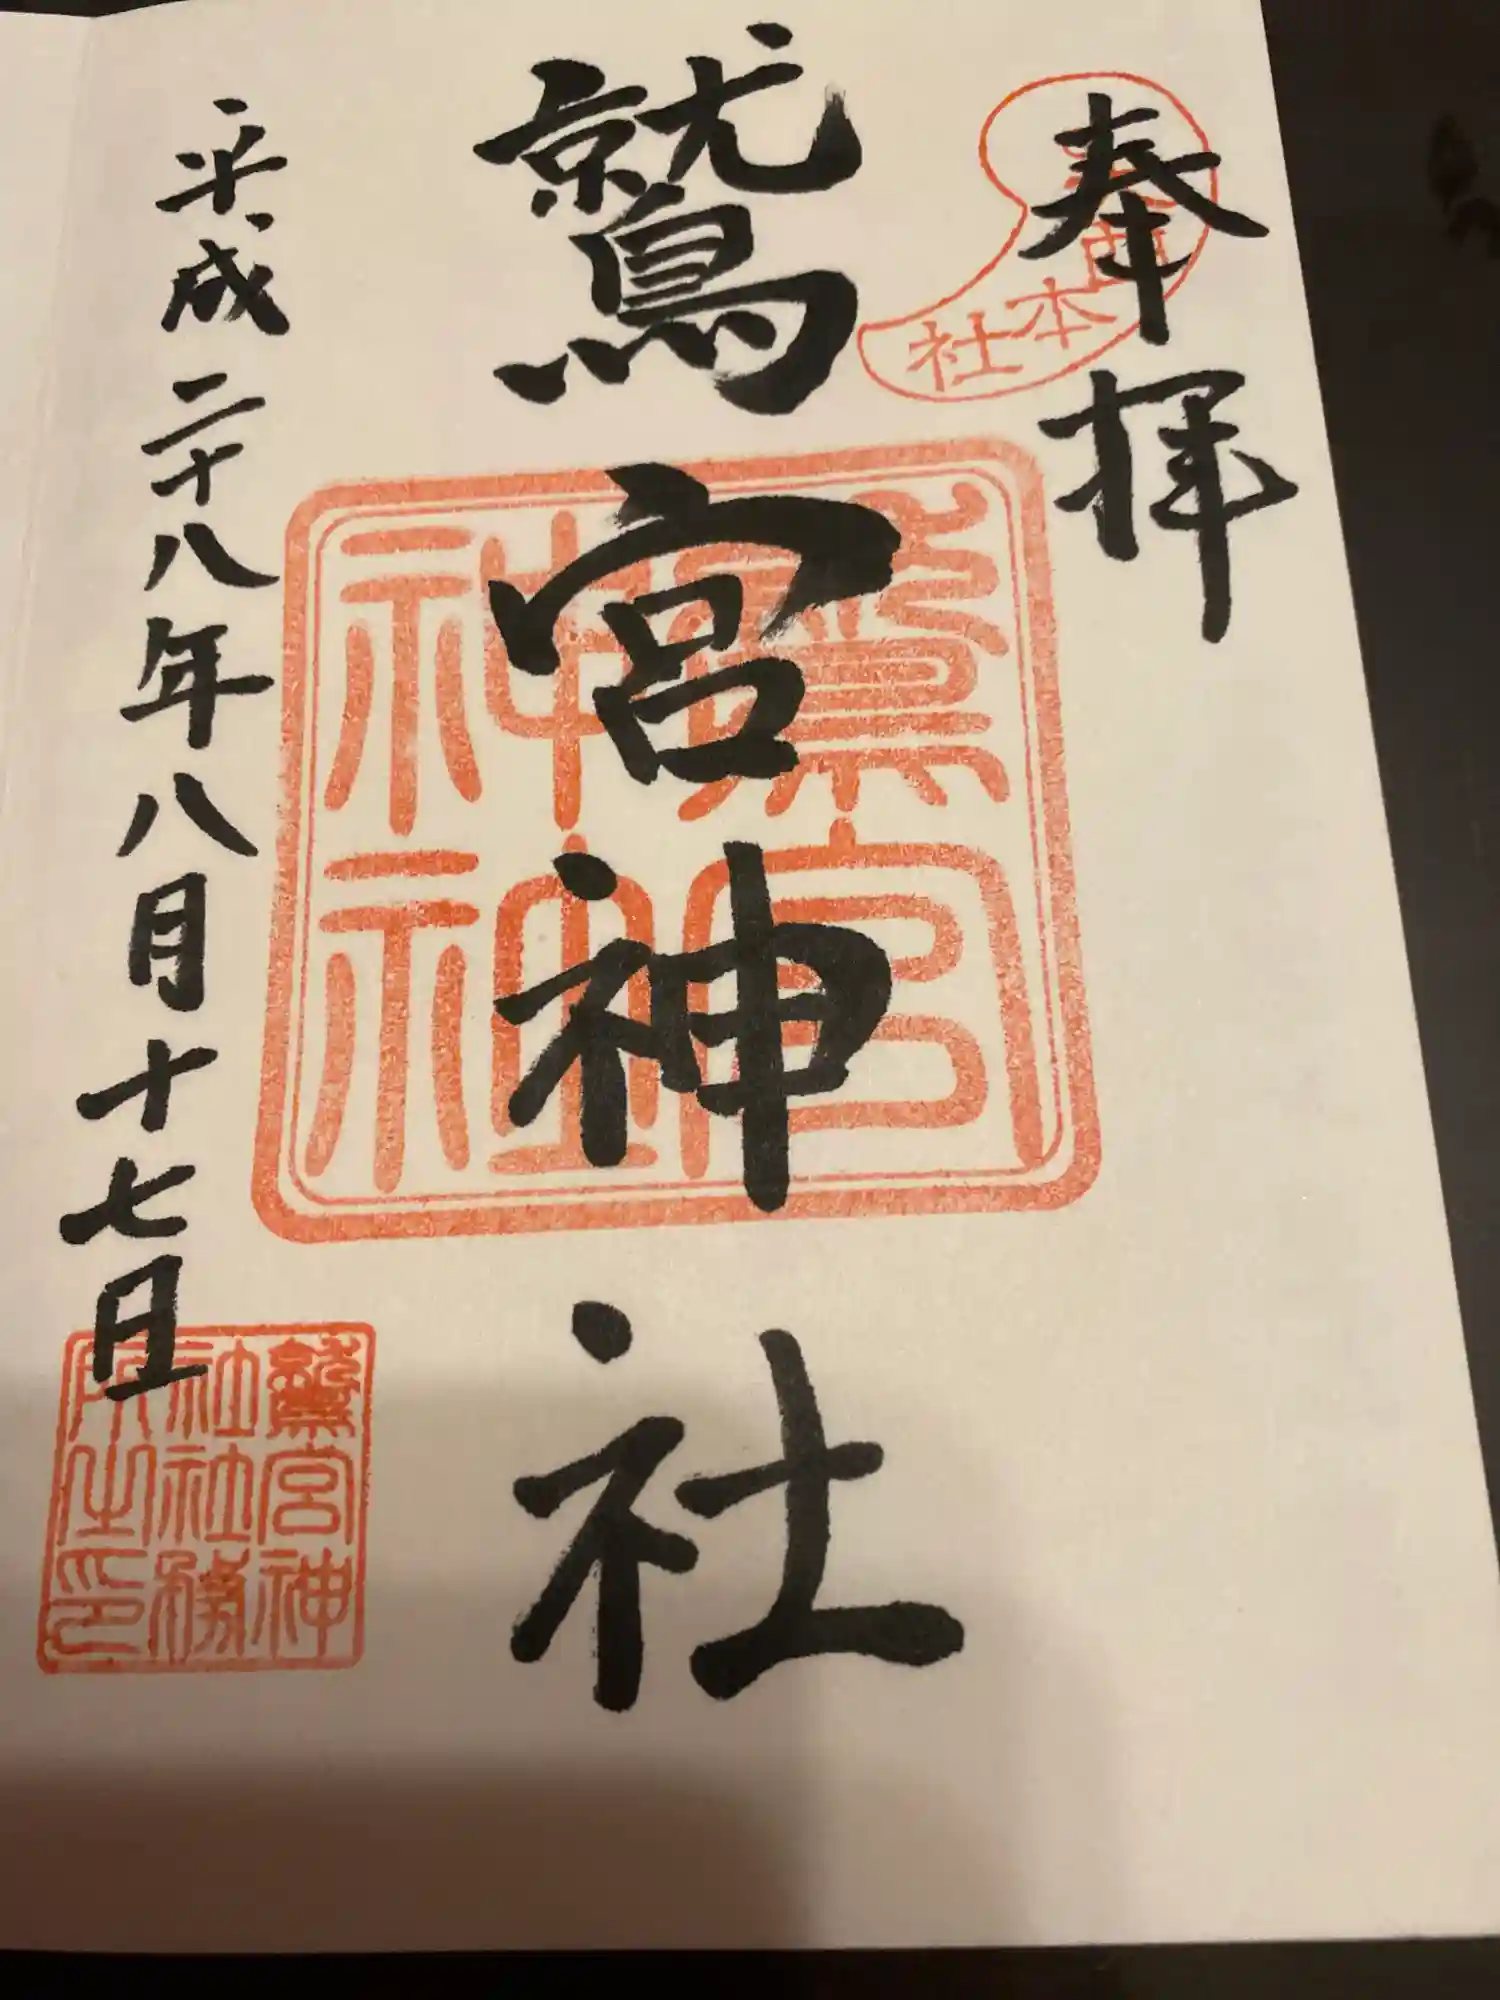 奉拝
本社
鷲宮神社
鷲宮神社
平成二十八年八月十七日
鷲宮神
社社務
所之印